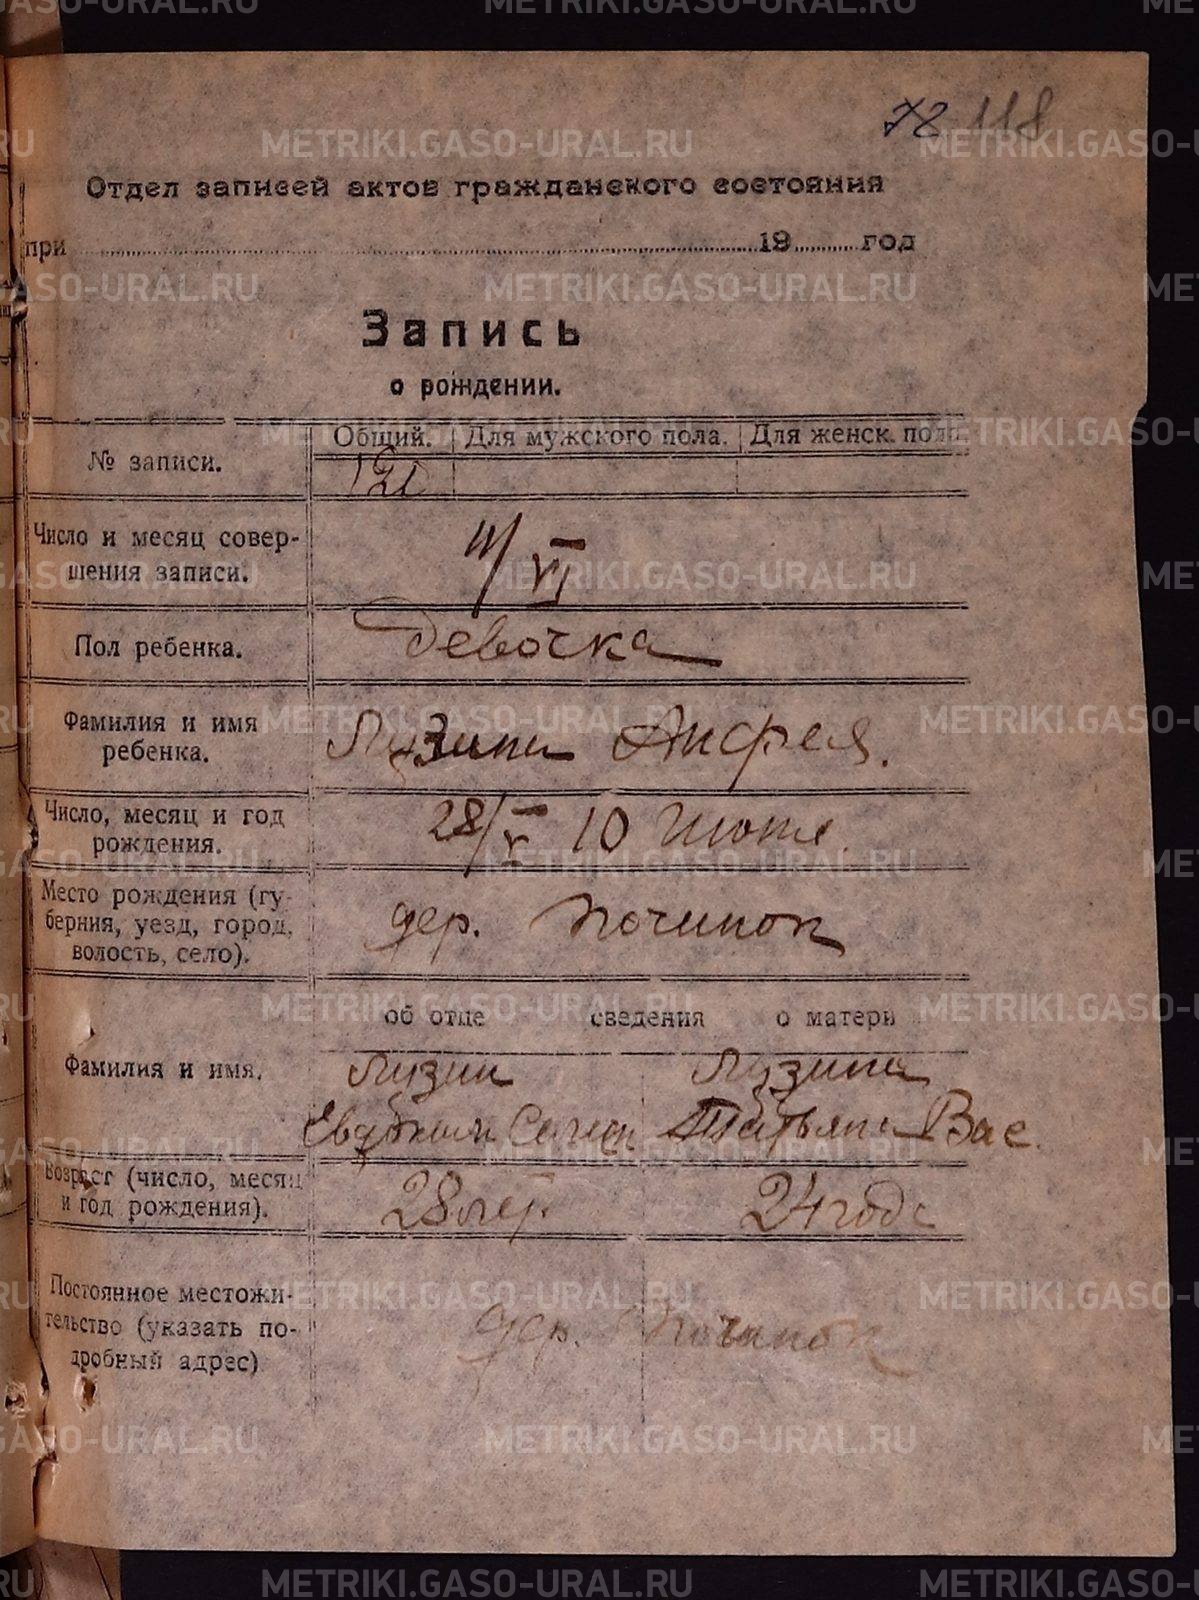 72 118
Отдел записей актов гражданского состояния
при 19 год
Запись
о рождении.
№ записи. Общий. Для мужского пола. Для женск. пола
121
Число и месяц совер-
шения записи.
11/VI
Пол ребенка. Девочка
Фамилия и имя
ребенка.
Лузина Анфея.
Число, месяц и год
рождения.
28/V 10 Июня.
Место рождения (гу-
берния, уезд, город,
волость, село).
дер. Починок
об отце сведения о матери
Фамилия и имя.
Лузин Лузина
Татьяна Вас.
Возраст (число, месяц
и год рождения).
28 лет. 24 года
Постоянное местожи-
тельство (указать по-
дробный адрес)
дер. Починок
METRIKI.GASO-URAL.RU